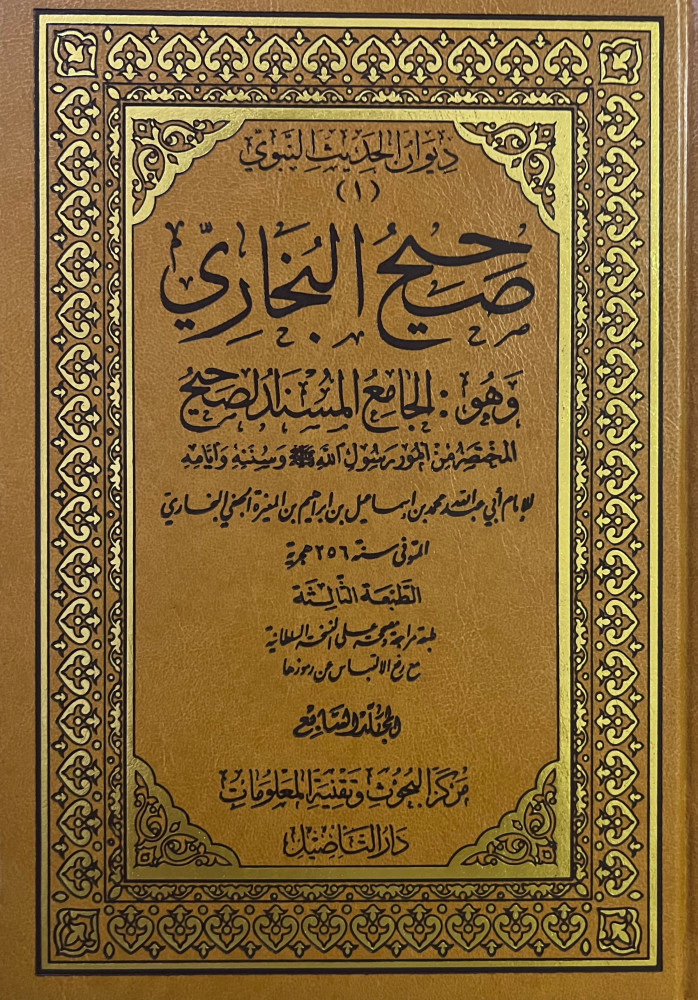 ديوان الحديث النبوي
(١)
صَحِيحُ البُخَارِيّ
وَهُوَ: الجَامِعُ المُسْنَدُ الصَحِيحُ
المختصر من أمور رسول الله ﷺ وسننه وأيامه
للإمام أبي عبد الله محمد بن إسماعيل بن إبراهيم بن المغيرة الجعفي البخاري
المتوفى سنة ٢٥٦ هجرية
الطبعة الثالثة
طبعة مراجعة ومصححة على النسخة السلطانية
مع رفع الالتباس عن رموزها
المجلد السابع
مركز البحوث وتقنية المعلومات
دار التأصيل